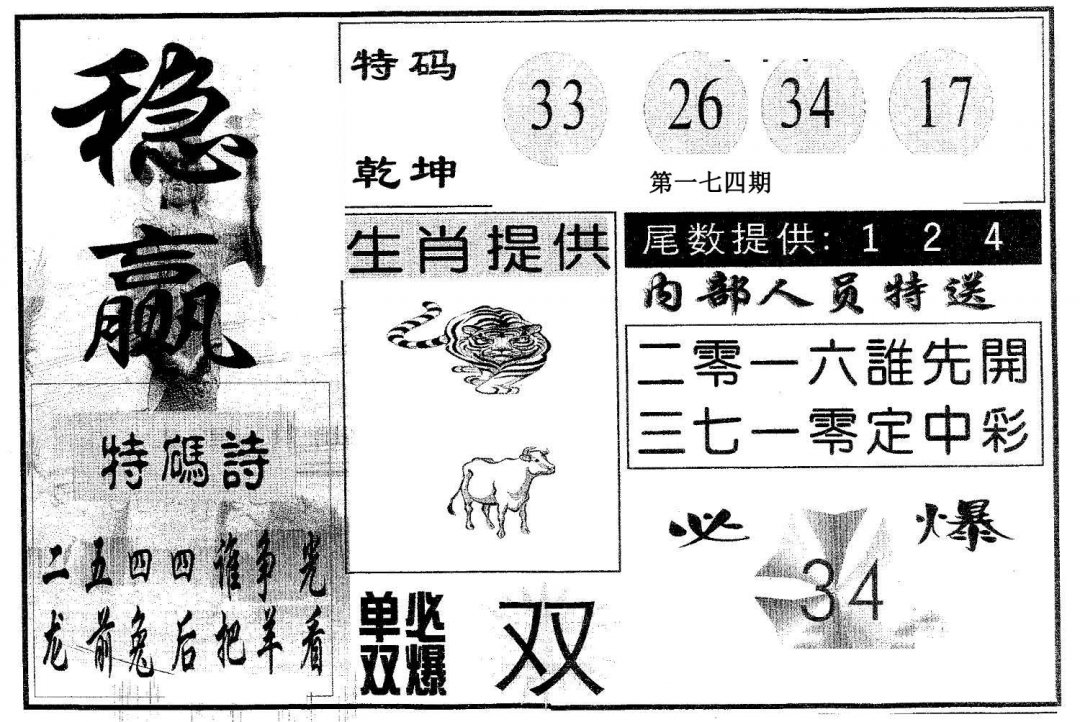 稳赢
特码诗
二五四四谁争光
龙前兔后把羊看
特码
乾坤
33 26 34 17
第一七四期
生肖提供
尾数提供: 1 2 4
内部人员特送
二零一六誰先開
三七一零定中彩
必爆
34
单双必爆
双